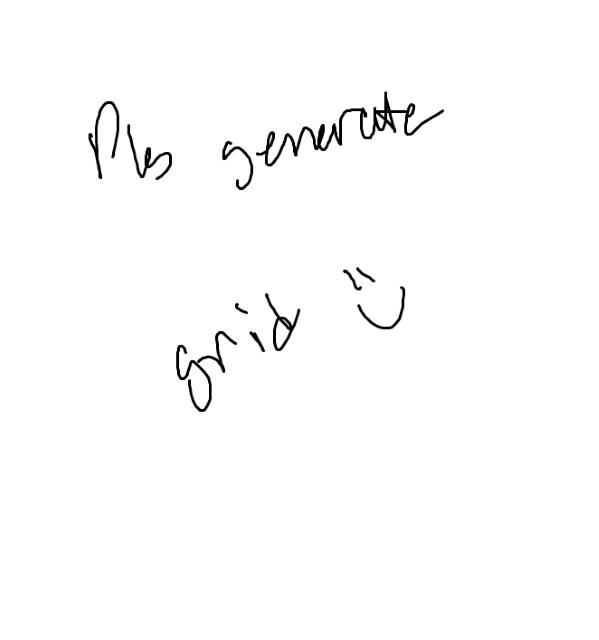 Pls generate
grid